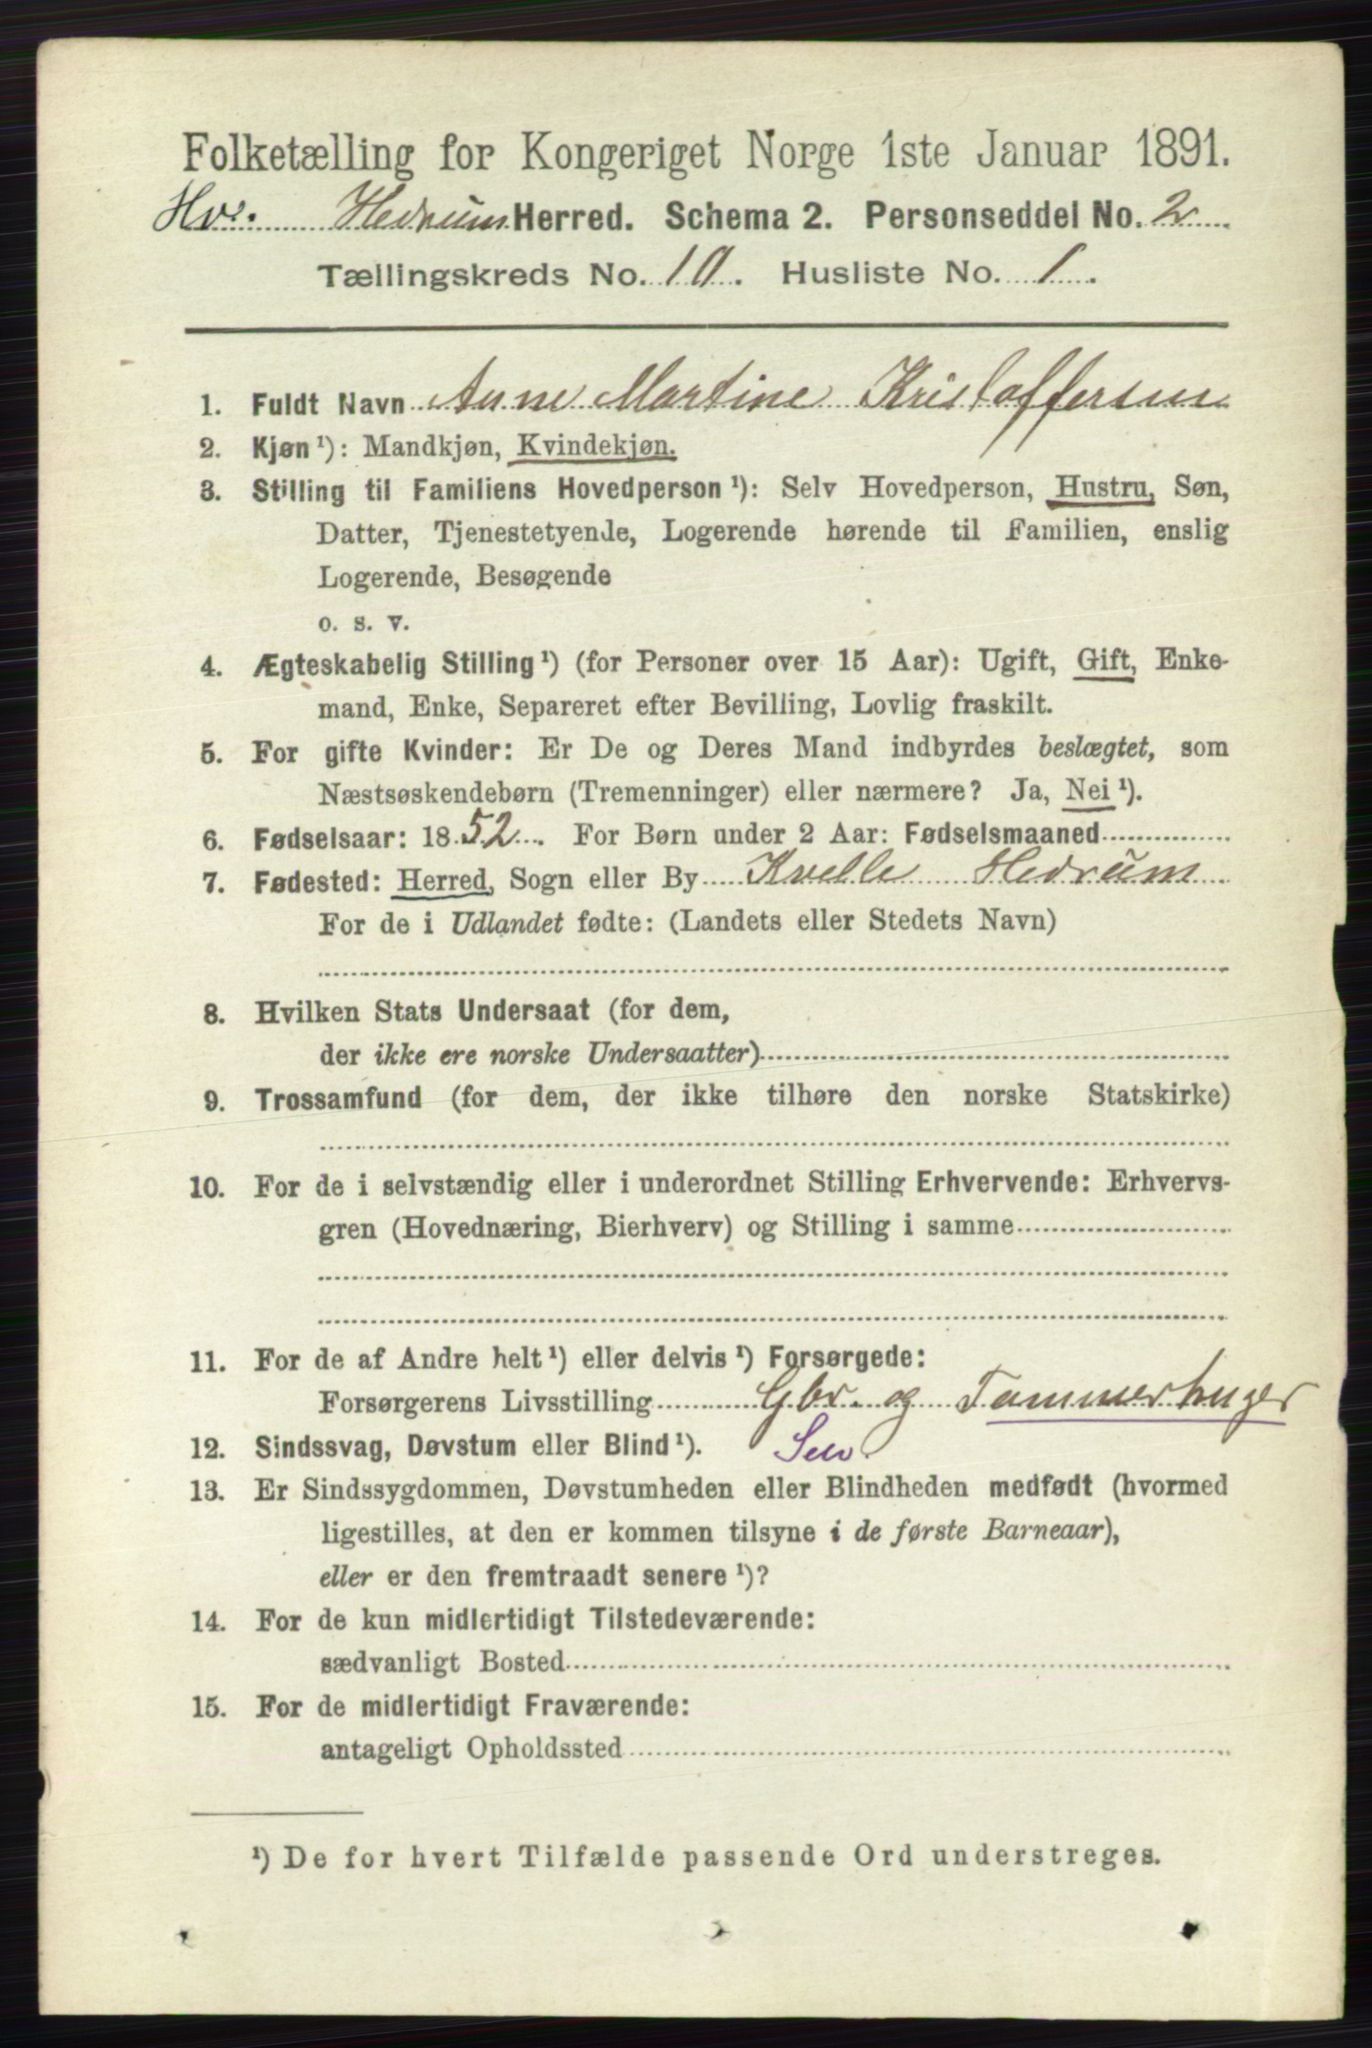 Folketælling for Kongeriget Norge 1ste Januar 1891.
Hvs. Hedrum Herred. Schema 2. Personseddel No. 2
Tællingskreds No. 10. Husliste No. 1.
1. Fuldt Navn Anne Martine Kristoffersen
2. Kjøn¹): Mandkjøn, Kvindekjøn.
3. Stilling til Familiens Hovedperson¹): Selv Hovedperson, Hustru, Søn,
Datter, Tjenestetyende, Logerende hørende til Familien, enslig
Logerende, Besøgende
o. s. v.
4. Ægteskabelig Stilling¹) (for Personer over 15 Aar): Ugift, Gift, Enke-
mand, Enke, Separeret efter Bevilling, Lovlig fraskilt.
5. For gifte Kvinder: Er De og Deres Mand indbyrdes beslægtet, som
Næstsøskendebørn (Tremenninger) eller nærmere? Ja, Nei¹).
6. Fødselsaar: 1852. For Børn under 2 Aar: Fødselsmaaned
7. Fødested: Herred, Sogn eller By Kvelle Hedrum
For de i Udlandet fødte: (Landets eller Stedets Navn)
8. Hvilken Stats Undersaat (for dem,
der ikke ere norske Undersaatter)
9. Trossamfund (for dem, der ikke tilhøre den norske Statskirke)
10. For de i selvstændig eller i underordnet Stilling Erhvervende: Erhvervs-
gren (Hovednæring, Bierhverv) og Stilling i samme
11. For de af Andre helt¹) eller delvis¹) Forsørgede:
Forsørgerens Livsstilling Gbr. og Tømmerhuger
12. Sindssvag, Døvstum eller Blind¹). Selv
13. Er Sindssygdommen, Døvstumheden eller Blindheden medfødt (hvormed
ligestilles, at den er kommen tilsyne i de første Barneaar),
eller er den fremtraadt senere¹)?
14. For de kun midlertidigt Tilstedeværende:
sædvanligt Bosted
15. For de midlertidigt Fraværende:
antageligt Opholdssted
¹) De for hvert Tilfælde passende Ord understreges.